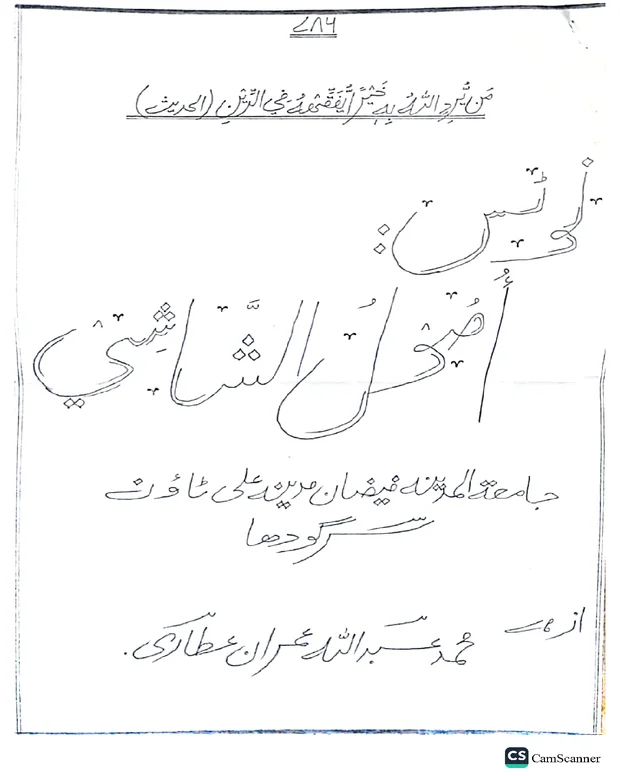 ۷۸۶
مَن يُّرِدِ اللّٰهُ بِهٖ خَيْرًا يُّفَقِّهْهُ فِي الدِّيْنِ (الحديث)
نوٹس:
أُصُولُ الشَّاشِي
جامعۃ المدینہ فیضان مدینہ علی ٹاؤن
سرگودھا
از
محمد عبد اللہ عمران عطاری۔
CS CamScanner